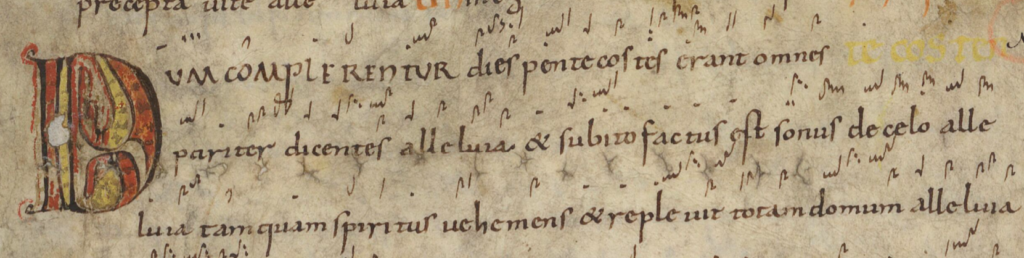 precepta uite alle luia
DUM COMPLERENTUR dies pentecostes erant omnes
pariter dicentes alleluia & subito factus est sonus de celo alle
luia tamquam spiritus uehemens & repleuit totam domum alleluia